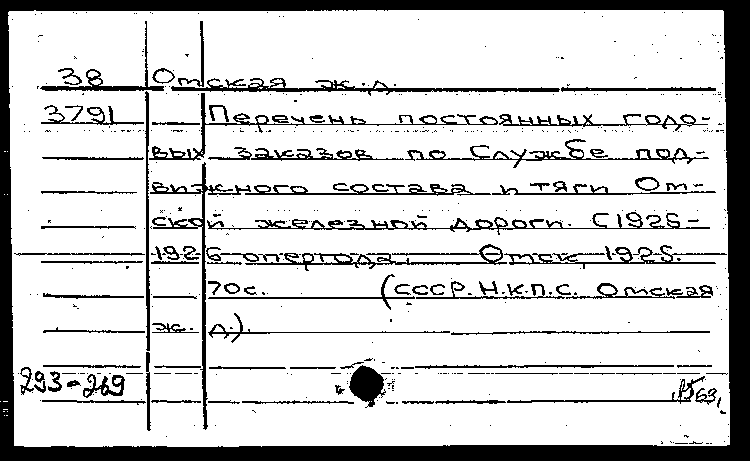 38 Омская ж.д.
3791 Перечень постоянных годо-
вых заказов по Службе под-
вижного состава и тяги Ом-
ской железной дороги. (1925-
1926 опергода. Омск, 1925.
70с. (СССР. Н.К.П.С. Омская
ж. д.).
293-269